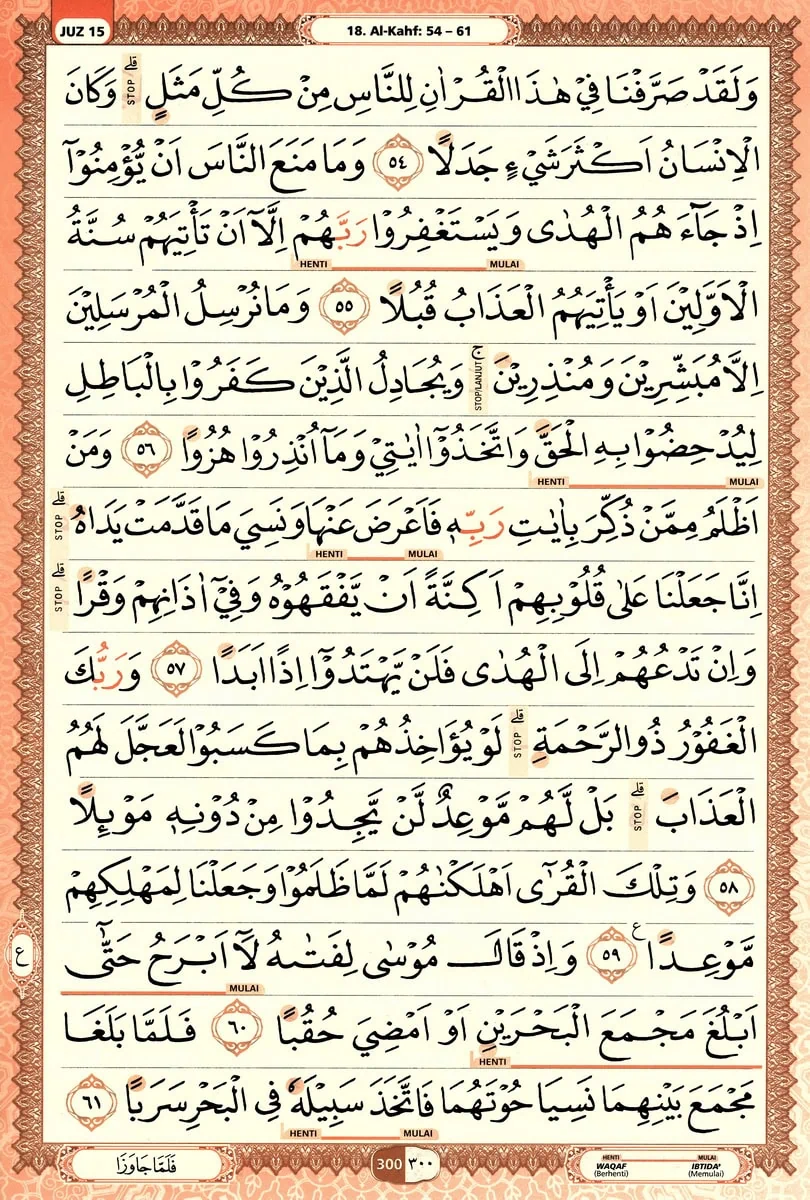 JUZ 15
18. Al-Kahf: 54 – 61
وَلَقَدْ صَرَّفْنَا فِيْ هٰذَا الْقُرْاٰنِ لِلنَّاسِ مِنْ كُلِّ مَثَلٍۗ وَكَانَ
STOP
الْاِنْسَانُ اَكْثَرَ شَيْءٍ جَدَلًا ٥٤ وَمَا مَنَعَ النَّاسَ اَنْ يُّؤْمِنُوْٓا
اِذْ جَاۤءَهُمُ الْهُدٰى وَيَسْتَغْفِرُوْا رَبَّهُمْ اِلَّآ اَنْ تَأْتِيَهُمْ سُنَّةُ
HENTI MULAI
الْاَوَّلِيْنَ اَوْ يَأْتِيَهُمُ الْعَذَابُ قُبُلًا ٥٥ وَمَا نُرْسِلُ الْمُرْسَلِيْنَ
اِلَّا مُبَشِّرِيْنَ وَمُنْذِرِيْنَۚ وَيُجَادِلُ الَّذِيْنَ كَفَرُوْا بِالْبَاطِلِ
STOP/LANJUT
لِيُدْحِضُوْا بِهِ الْحَقَّ وَاتَّخَذُوْٓا اٰيٰتِيْ وَمَآ اُنْذِرُوْا هُزُوًا ٥٦ وَمَنْ
HENTI MULAI
اَظْلَمُ مِمَّنْ ذُكِّرَ بِاٰيٰتِ رَبِّهٖ فَاَعْرَضَ عَنْهَا وَنَسِيَ مَا قَدَّمَتْ يَدَاهُۗ
STOP
HENTI MULAI
اِنَّا جَعَلْنَا عَلٰى قُلُوْبِهِمْ اَكِنَّةً اَنْ يَّفْقَهُوْهُ وَفِيْٓ اٰذَانِهِمْ وَقْرًاۗ
STOP
وَاِنْ تَدْعُهُمْ اِلَى الْهُدٰى فَلَنْ يَّهْتَدُوْٓا اِذًا اَبَدًا ٥٧ وَرَبُّكَ
الْغَفُوْرُ ذُو الرَّحْمَةِۗ لَوْ يُؤَاخِذُهُمْ بِمَا كَسَبُوْا لَعَجَّلَ لَهُمُ
STOP
الْعَذَابَۗ بَلْ لَّهُمْ مَّوْعِدٌ لَّنْ يَّجِدُوْا مِنْ دُوْنِهٖ مَوْىِٕلًا
STOP
٥٨ وَتِلْكَ الْقُرٰٓى اَهْلَكْنٰهُمْ لَمَّا ظَلَمُوْا وَجَعَلْنَا لِمَهْلِكِهِمْ
مَّوْعِدًا ࣖ ٥٩ وَاِذْ قَالَ مُوْسٰى لِفَتٰىهُ لَآ اَبْرَحُ حَتّٰٓى
ع
MULAI
اَبْلُغَ مَجْمَعَ الْبَحْرَيْنِ اَوْ اَمْضِيَ حُقُبًا ٦٠ فَلَمَّا بَلَغَا
HENTI
مَجْمَعَ بَيْنِهِمَا نَسِيَا حُوْتَهُمَا فَاتَّخَذَ سَبِيْلَهٗ فِى الْبَحْرِ سَرَبًا ٦١
HENTI MULAI
فَلَمَّا جَاوَزَا
300 ٣٠٠
HENTI MULAI
WAQAF IBTIDA'
(Berhenti) (Memulai)